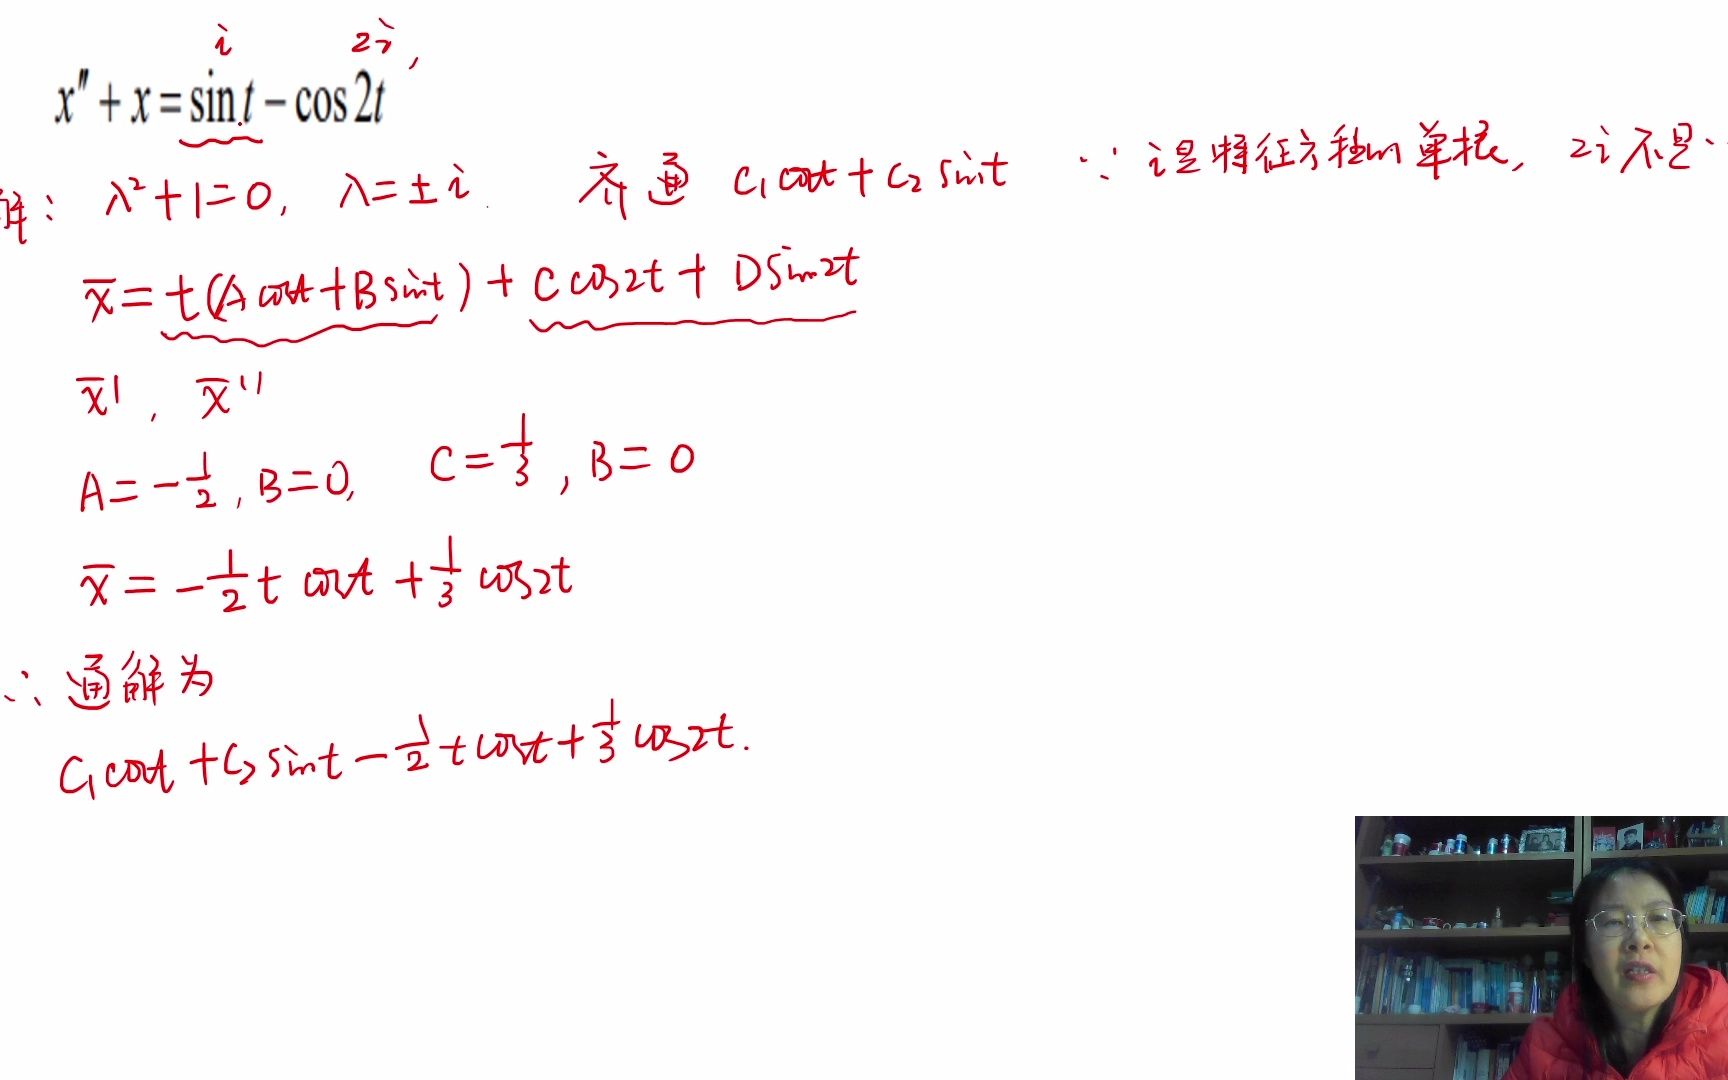 i 2i,
x″ + x = sin t − cos 2t
解: λ²+1=0, λ=±i. 齐通 C₁cost+C₂sint ∵ i是特征方程的单根, 2i不是⋯
x̄ = t(Acost+Bsint)+Ccos2t+Dsin2t
x̄′, x̄″
A=−1/2, B=0, C=1/3, B=0
x̄ = −1/2 t cost + 1/3 cos2t
∴ 通解为
C₁cost+C₂sint−1/2 tcost+1/3 cos2t.